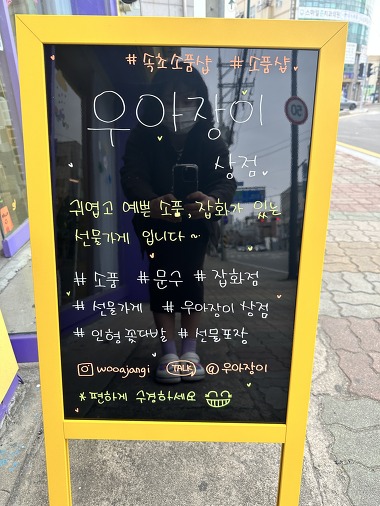 #속초소품샵 #소품샵
우아장이
상점
귀엽고 예쁜 소품, 잡화가 있는
선물가게 입니다~
#소품 #문수 #잡화점
#선물가게 #우아장이 상점
#인형꽃다발 #선물포장
wooajangi TALK @우아장이
*편하게 구경하세요
50